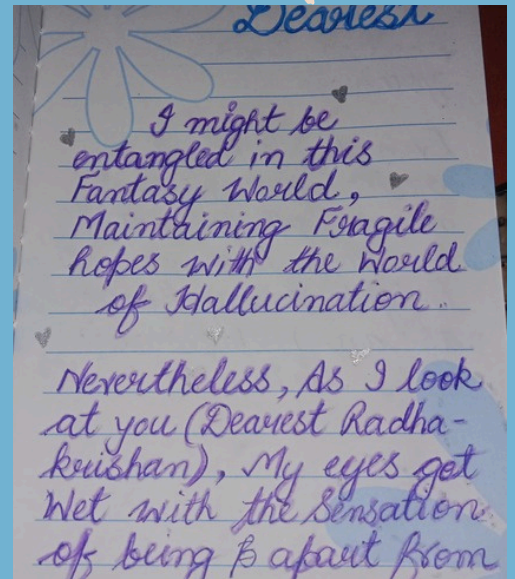 Dearest
I might be
entangled in this
Fantasy World,
Maintaining Fragile
hopes with the World
of Hallucination..
Nevertheless, As I look
at you (Dearest Radha-
krishan), My eyes get
Wet with the Sensation
of being apart from